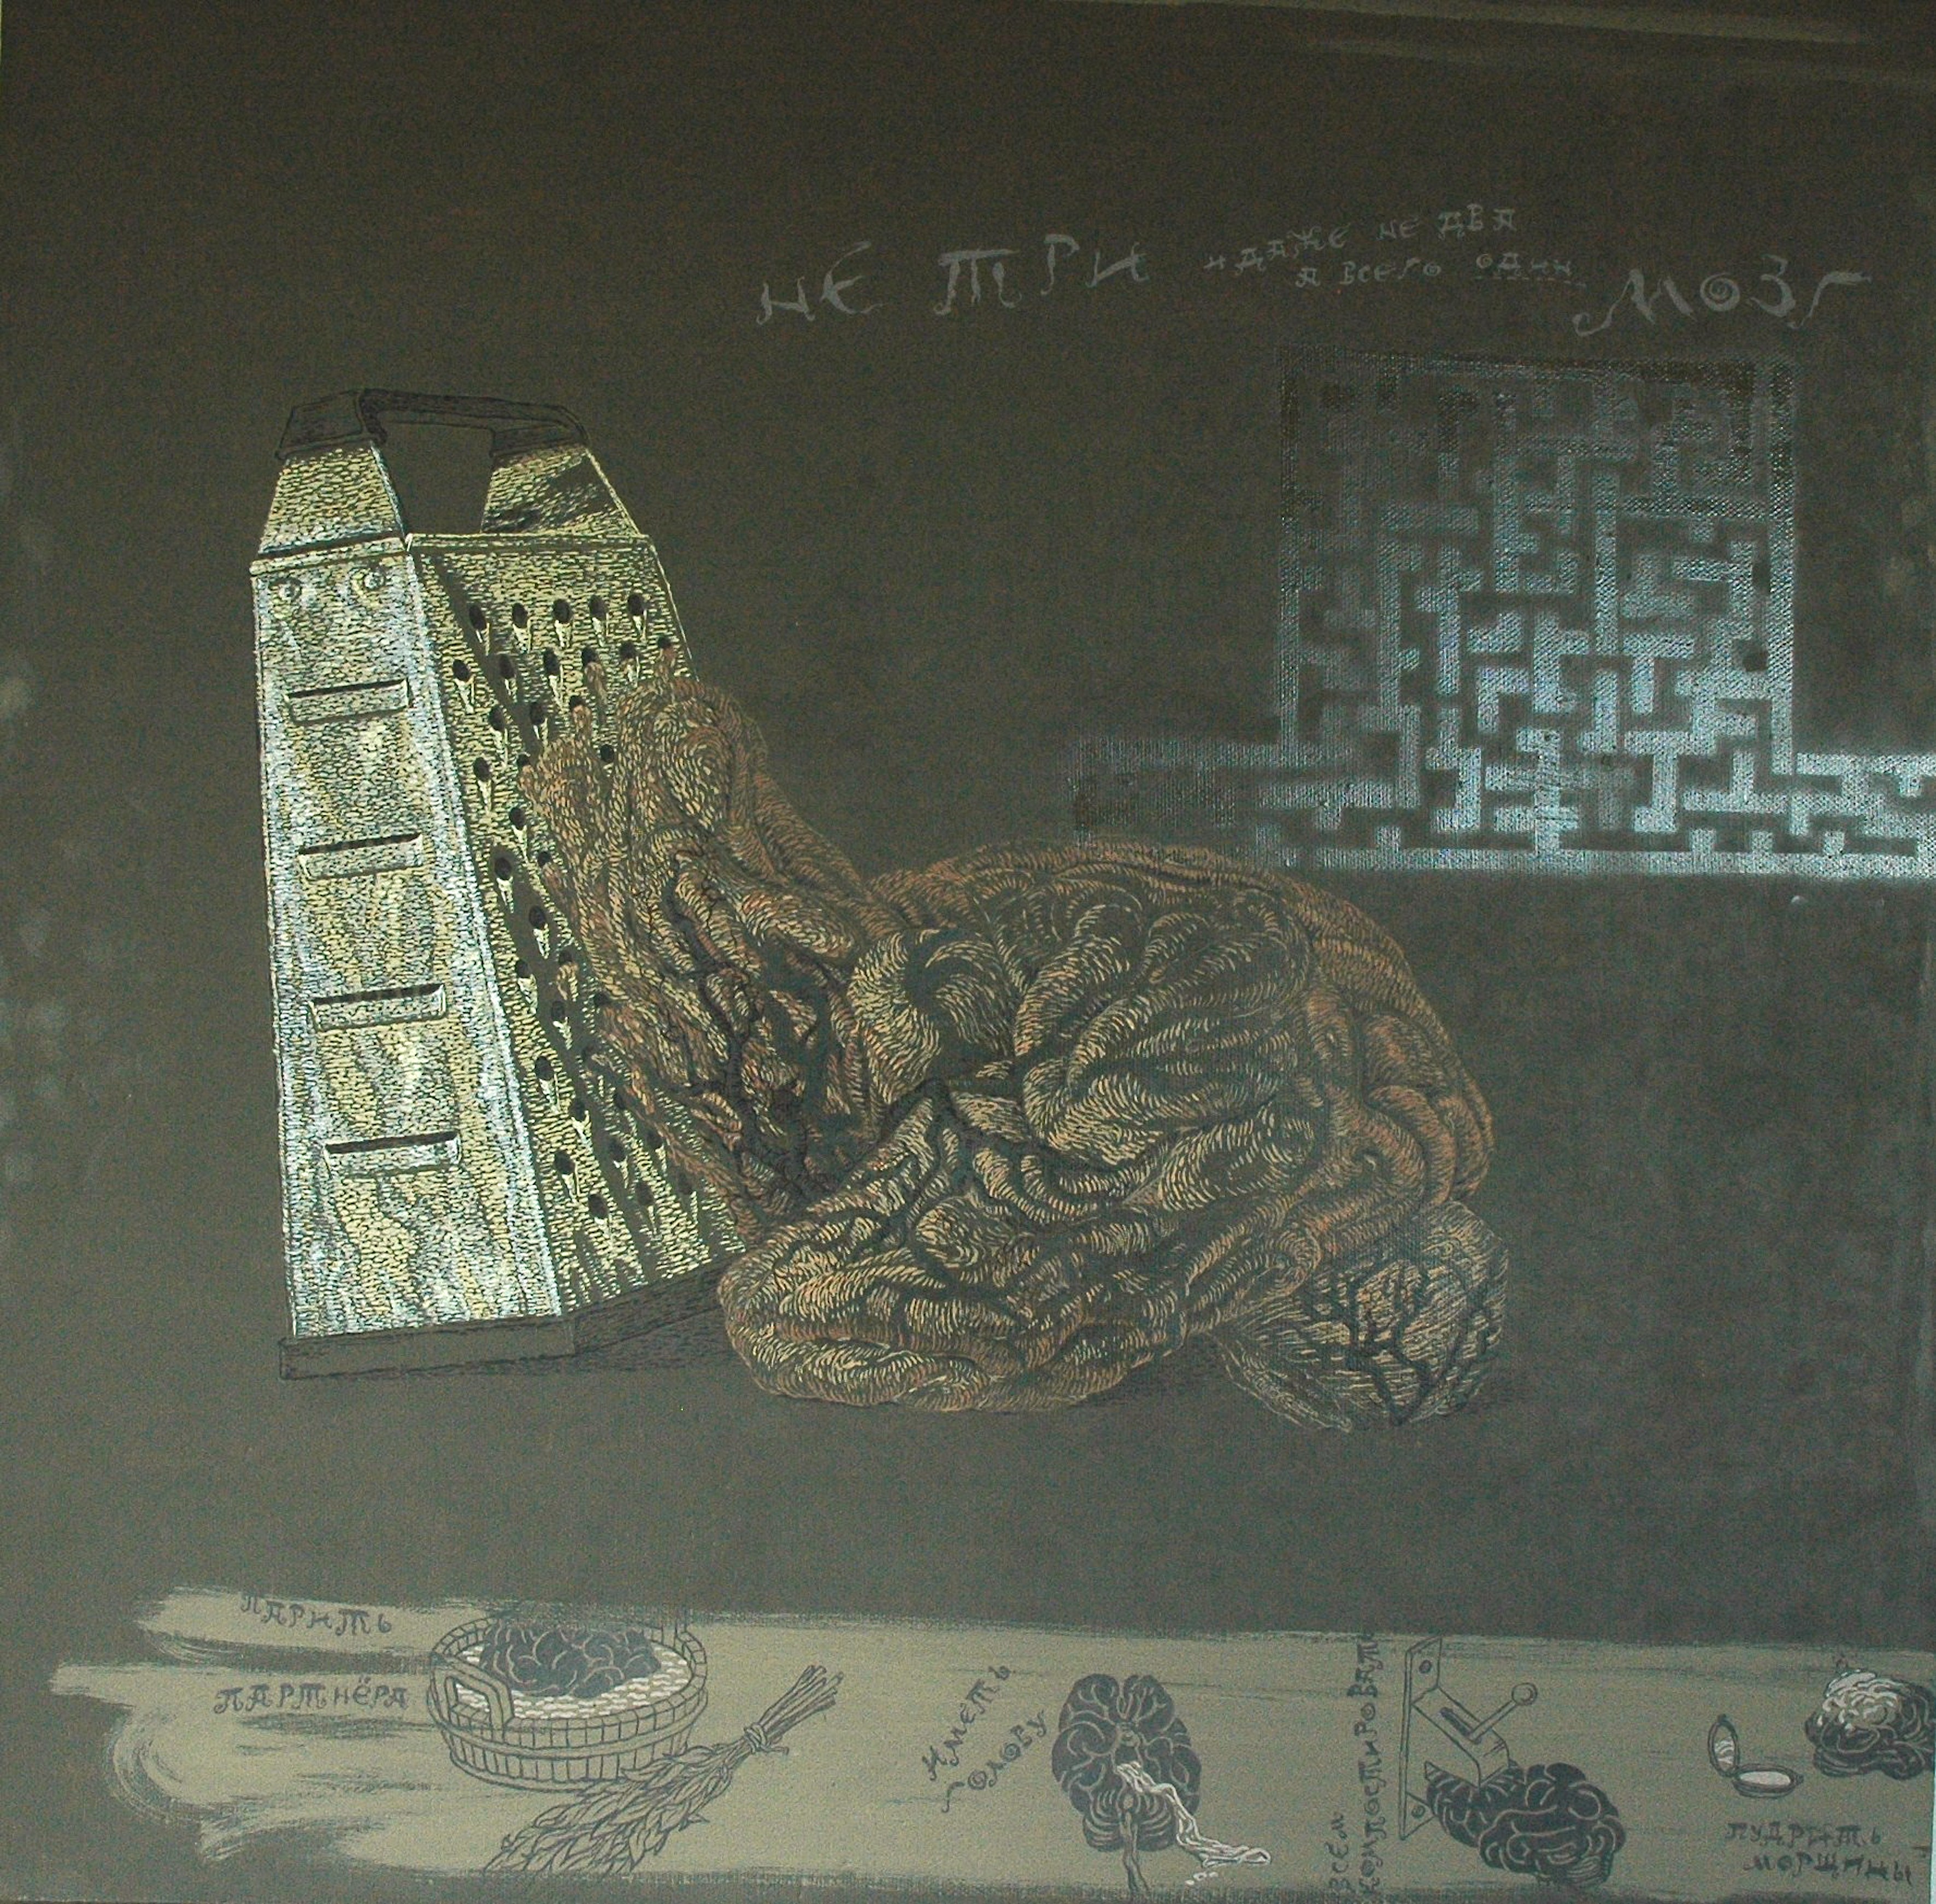 НЕ ТРИ
И ДАЖЕ НЕ ДВА
А ВСЕГО ОДИН
МОЗГ
ПАРИТЬ
ПАРТНЁРА
ИМЕТЬ
ГОЛОВУ
ВСЕМ
КОМПОСТИРОВАТЬ
ПУДРИТЬ
МОРЩИНЫ